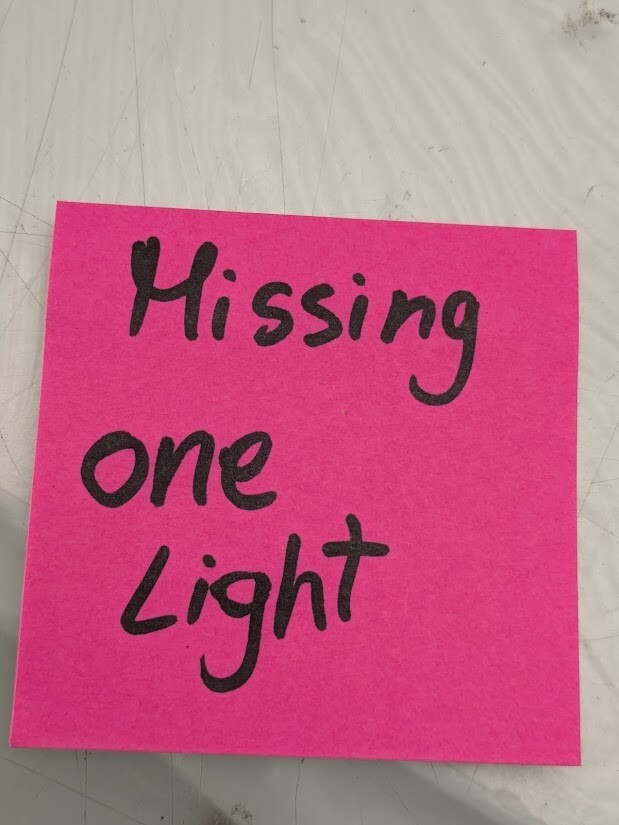 Missing
one
Light